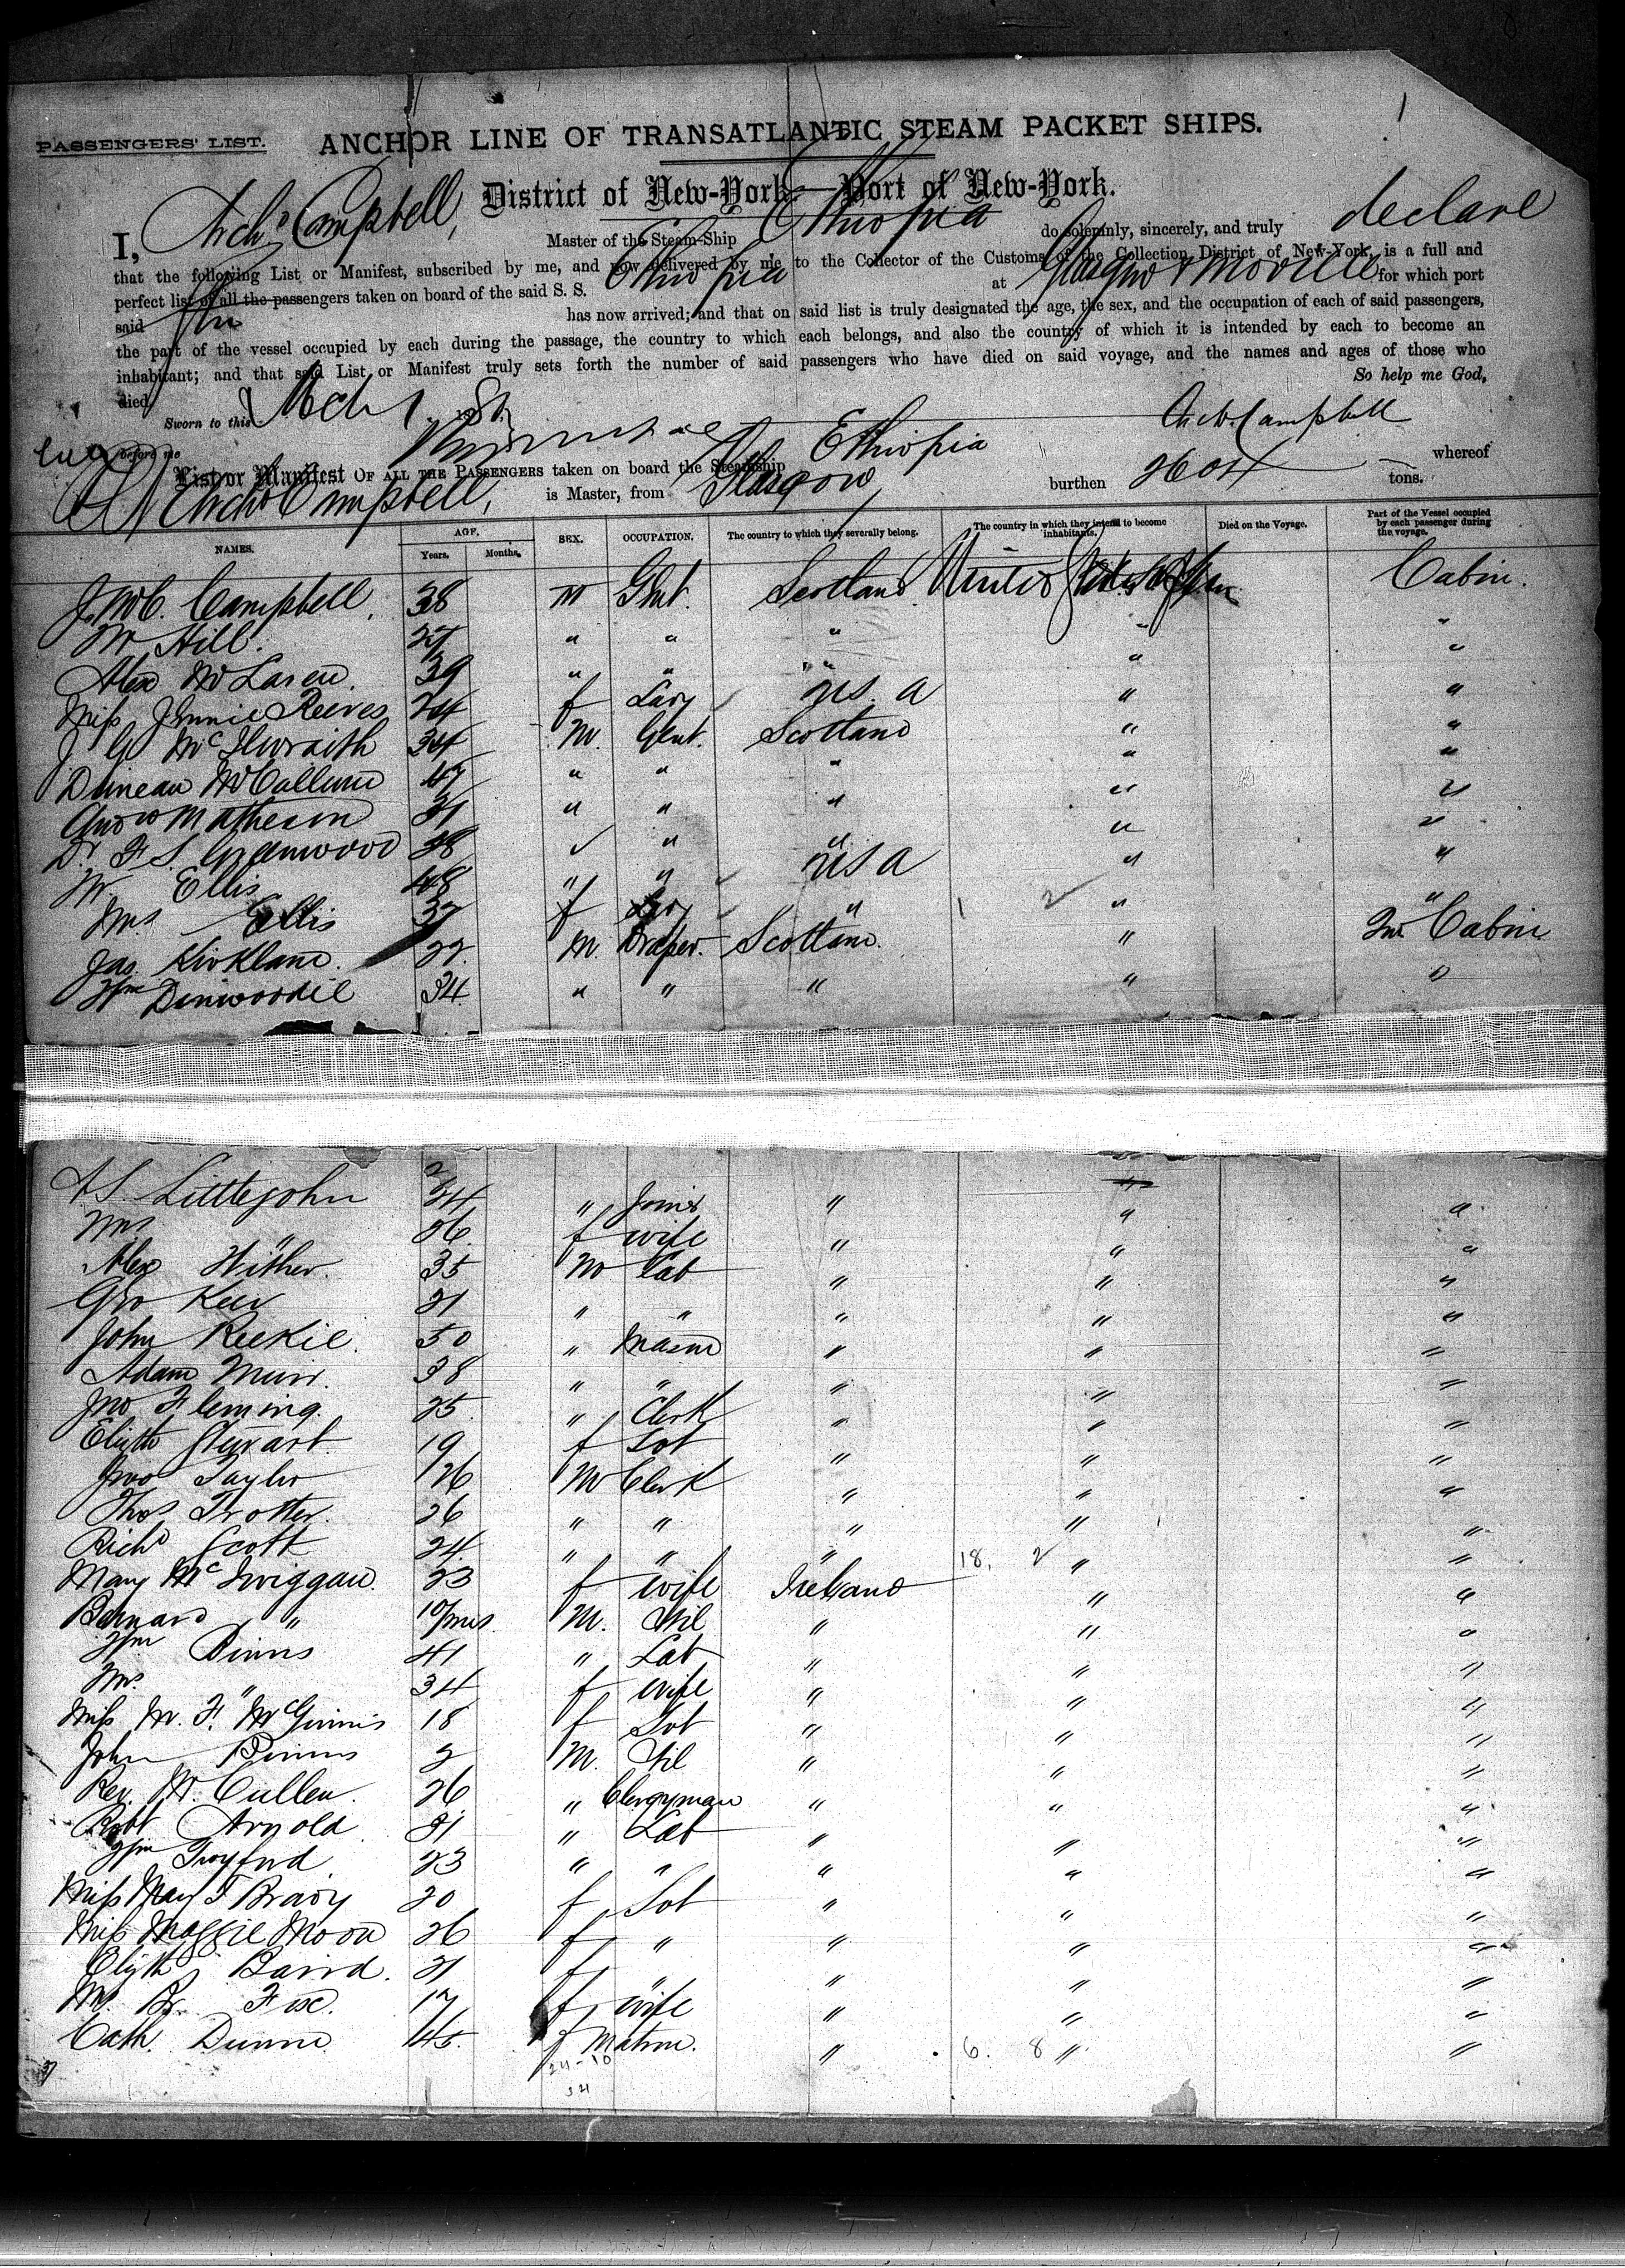 PASSENGERS' LIST.
ANCHOR LINE OF TRANSATLANTIC STEAM PACKET SHIPS.
District of New-York—Port of New-York.
I, Archd Campbell, Master of the Steam-Ship Ethiopia do solemnly, sincerely, and truly declare
that the following List or Manifest, subscribed by me, and now delivered by me to the Collector of the Customs of the Collection District of New-York, is a full and
perfect list of all the passengers taken on board of the said S. S. Ethiopia at Glasgow & Moville for which port
said has now arrived; and that on said list is truly designated the age, the sex, and the occupation of each of said passengers,
the part of the vessel occupied by each during the passage, the country to which each belongs, and also the country of which it is intended by each to become an
inhabitant; and that said List or Manifest truly sets forth the number of said passengers who have died on said voyage, and the names and ages of those who
died. So help me God,
Sworn to this Mch 1 Archd. Campbell
before me
List or Manifest OF ALL THE PASSENGERS taken on board the Steamship Ethiopia whereof
Archd Campbell, is Master, from Glasgow burthen 2604 tons.
NAMES. AGE. Years. Months. SEX. OCCUPATION. The country to which they severally belong. The country in which they intend to become inhabitants. Died on the Voyage. Part of the Vessel occupied by each passenger during the voyage.
J. McC. Campbell. 38 m Gent. Scotland United States Cabin.
W Hill. 27 " " " " "
Alex McLaren. 39 " " " " "
Miss Jennie Reeves 24 f Lady U.S.A " "
J G McIlwraith 34 M. Gent. Scotland " "
Duncan McCallum 47 " " " " "
Andw Matheson 31 " " " " "
Dr F S. Greenwood 38 " " " " "
W. Ellis 48 " " USA " "
Mrs Ellis 37 f Lady " 1 2 " "
Jas. Kirkland. 22. M. Draper. Scotland. " Int. Cabin
Wm Dinwoodie 34 " " " " "
A S. Littlejohn 24 " Joiner " " "
Mrs " 26. f wife " " "
Alex Wither. 35 M Lab " " "
Geo Keir 21 " " " " "
John Reekie. 50 " Mason " " "
Adam Muir. 38 " " " " "
Jno Fleming. 25. " Clerk " " "
Elizth Stewart. 19 f Sst " " "
Jno Taylor 26 M Clerk " " "
Thos Trotter. 26 " " " " "
Richd Scott 24. " " " 18. 2 " "
Mary McSwiggan. 23 f wife Ireland " "
Bernard " 10/mos. M. Nil " " "
Wm Binns 41 " Lab " " "
Mrs. " 34 f wife " " "
Miss M. F. McGinnis 18 f Sst " " "
John Binns 2 M. Nil " " "
Rev. W. Cullen. 26 " Clergyman " " "
Robt Arnold 21 " Lab " " "
Wm Twyford 23 " " " " "
Miss Mary J Brady 20 f Sst " " "
Miss Maggie Moon 26 f " " " "
Elizth Baird. 21 f " " " "
Mrs. Br. Fox. 17 f wife " " "
Cath. Dunn 45. f Matron. " 6. 8 " "
24-10